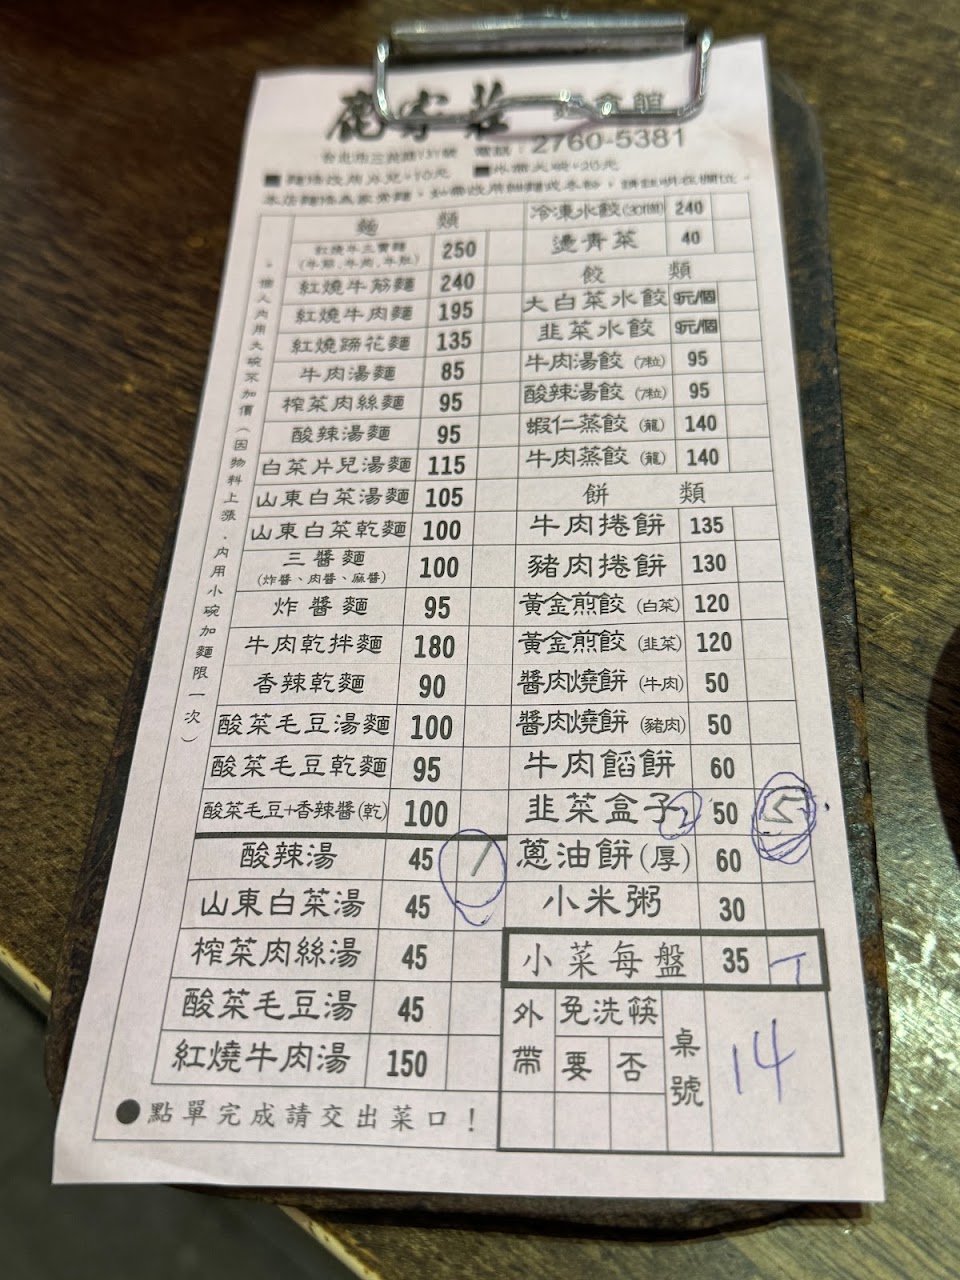 鹿家莊 麵食館
電話：2760-5381
■外帶大碗+20元
麵類
紅燒牛三寶麵 250
(牛筋、牛肉、牛肚)
紅燒牛筋麵 240
紅燒牛肉麵 195
紅燒蹄花麵 135
牛肉湯麵 85
榨菜肉絲麵 95
酸辣湯麵 95
白菜片兒湯麵 115
山東白菜湯麵 105
山東白菜乾麵 100
三醬麵 100
(炸醬、肉醬、麻醬)
炸醬麵 95
牛肉乾拌麵 180
香辣乾麵 90
酸菜毛豆湯麵 100
酸菜毛豆乾麵 95
酸菜毛豆+香辣醬(乾) 100
酸辣湯 45 1
山東白菜湯 45
榨菜肉絲湯 45
酸菜毛豆湯 45
紅燒牛肉湯 150
●點單完成請交出菜口！
冷凍水餃(30個) 240
燙青菜 40
餃類
大白菜水餃 9元/個
韭菜水餃 9元/個
牛肉湯餃(7粒) 95
酸辣湯餃(7粒) 95
蝦仁蒸餃(籠) 140
牛肉蒸餃(籠) 140
餅類
牛肉捲餅 135
豬肉捲餅 130
黃金煎餃(白菜) 120
黃金煎餃(韭菜) 120
醬肉燒餅(牛肉) 50
醬肉燒餅(豬肉) 50
牛肉餡餅 60
韭菜盒子 2 50 5
蔥油餅(厚) 60
小米粥 30
小菜每盤 35 T
外帶
免洗筷
要 否
桌號 14
。個人內用大碗菜加價(因物料上漲．內用小碗加麵限一次)